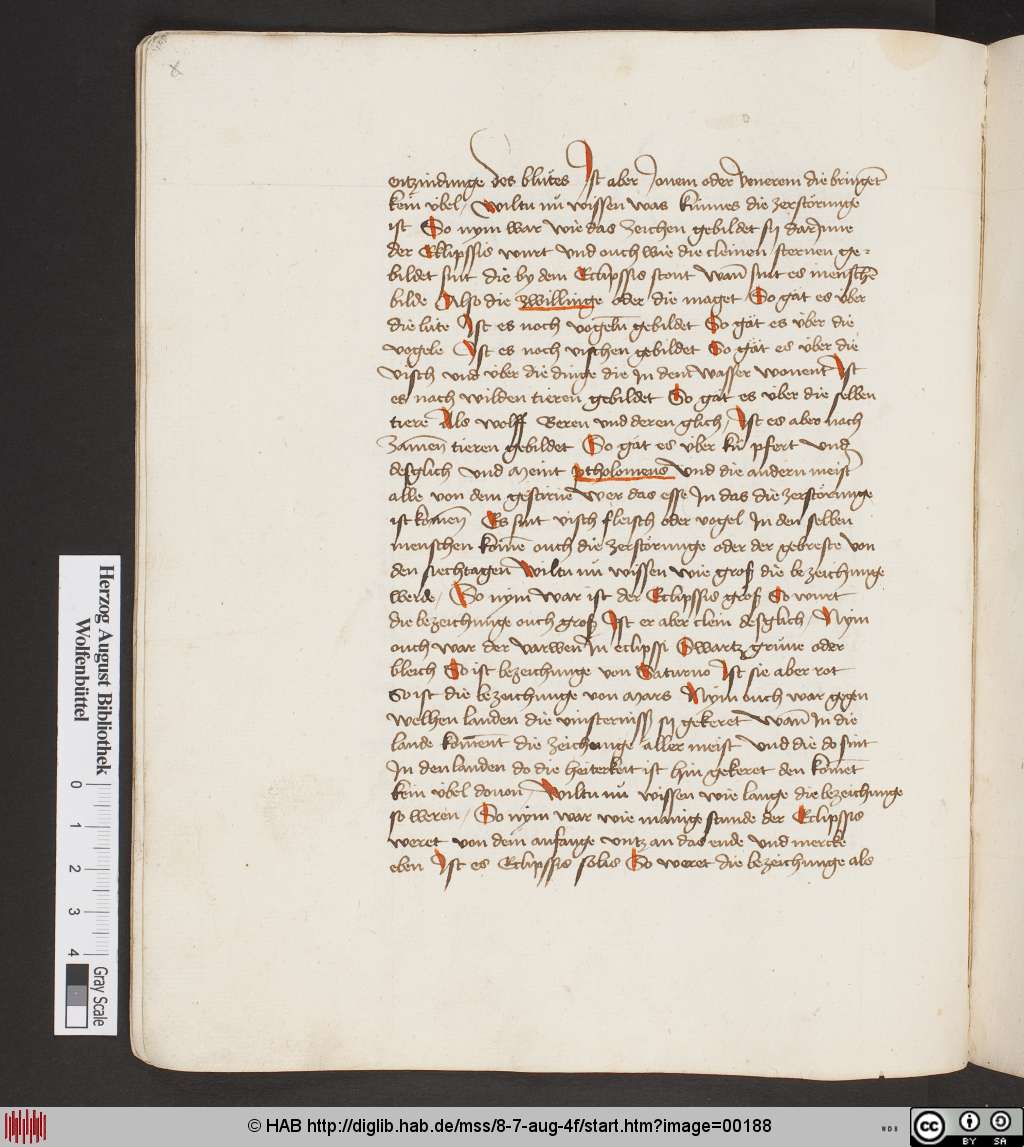 entzindunge des blůtes Ist aber Jouem oder Venerem die bringēt
kein v̈bel / wiltu nů wissen was kunnes die zerstörunge
ist So nym war wie das zeichen gebildet sy dar Inne
der Eklipssis wurt vnd ouch wie die cleinen sternen ge=
bildet sint die by dem Eclipssis stont wañ sint es mensch̄
bilde Also die zwillinge oder die maget So gät es v̈ber
die lüte Ist es noch vogeln gebildet So gät es v̈ber die
vogele Ist es noch vischen gebildet So gät es v̈ber die
visch vnd v̈ber die dinge die In dem wasser wonent Ist
es nach wilden tieren gebildet So gät es v̈ber die selben
tiere Als wolff Beren vnd deren glich / Ist es aber nach
Zamen̄ tieren gebildet So gät es v̈ber kü pfert vnd
desglich vnd meint ptholomeus vnd die andern meist
alle von dem gestirne wer das esse In das die zerstörunge
ist komen̄ Es sint visch fleisch oder vogel In den selben
menschen kome ouch die zerstörunge oder der gebreste von
den siechtagen wiltu nů wissen wie groß die bezeichunge
werde / So nym war ist der Eclipssis groß So wurt
die bezeichunge ouch groß Ist er aber clein desglich / Nym
ouch war der varwen In eclipssi Swartz grüne oder
bleich So ist bezeichunge von Saturno Ist sie aber rot
So ist die bezeichunge von Mars Nym ouch war gegen
welhen landen die vinsterniß sy gekeret wañ In die
lande koment die zeichunge aller meist vnd die do sint
In den landen do die heiterkeit ist hin gekeret den komet
kein v̈bel douon wiltu nů wissen wie lange die bezeichunge
so weren / So nym war wie manige stunde der Eclipssis
weret von dem anfange vntz an das ende vnd mercke
eben Ist es Eclipssis solis So weret die bezeichunge als
Herzog August Bibliothek
Wolfenbüttel
0 1 2 3 4
Gray Scale
© HAB http://diglib.hab.de/mss/8-7-aug-4f/start.htm?image=00188
WDB
cc BY SA